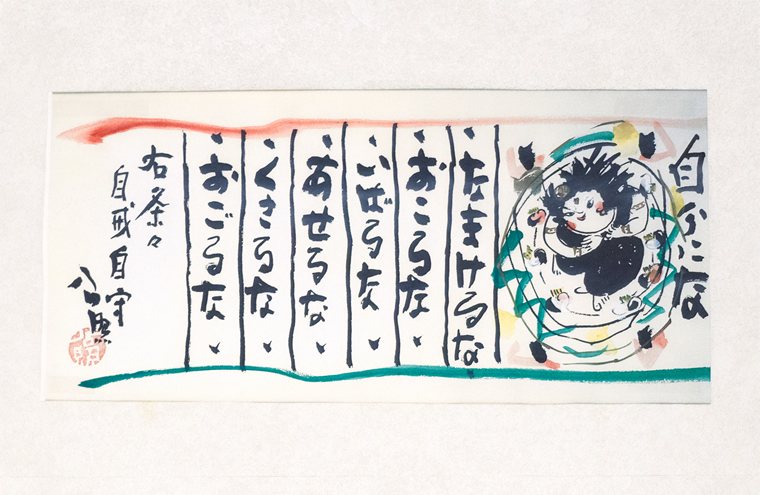 自分にな
なまけるな
おこるな
いばるな
あせるな
くさるな
おごるな
右条々
自戒自守